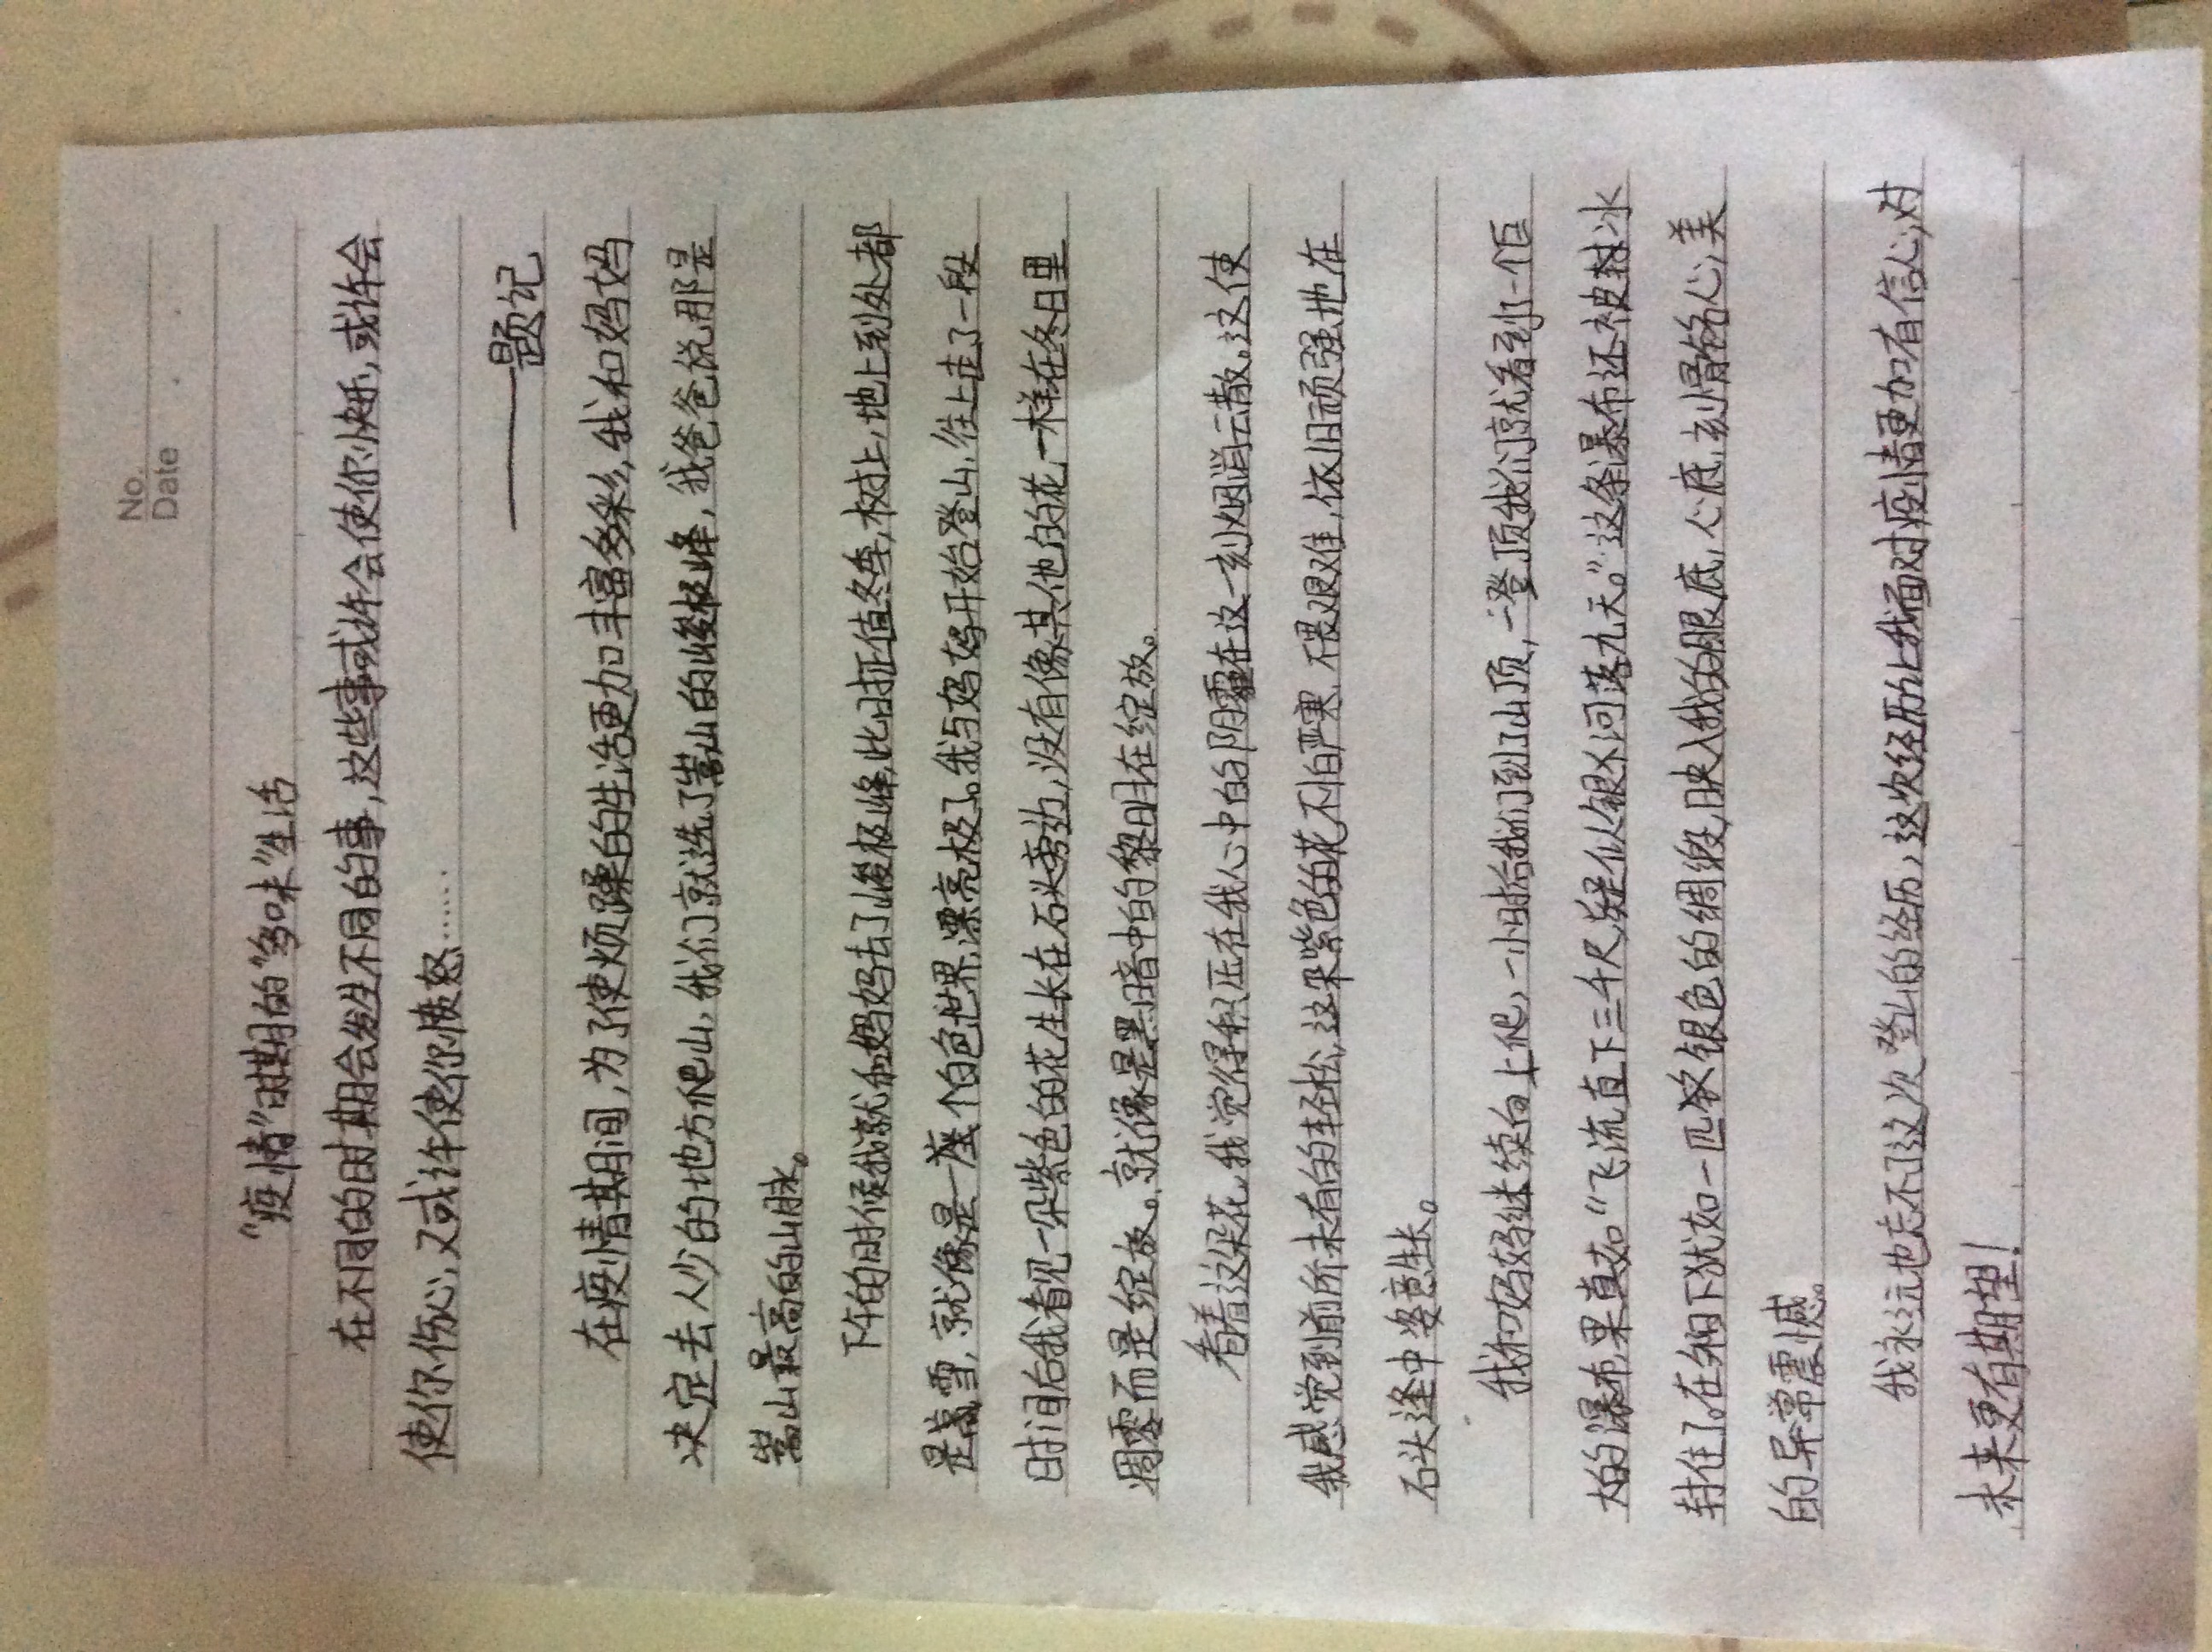 No.
Date
“疫情”时期的“多味”生活
在不同的时期会发生不同的事，这些事或许会使你快乐，或许会
使你伤心，又或许使你愤怒……
——题记
在疫情期间，为了使烦躁的生活更加丰富多彩，我和妈妈
决定去人少的地方爬山，我们就选了嵩山的峻极峰，我爸爸说那是
嵩山最高的山脉。
下午的时候我就和妈妈去了峻极峰，此时正值冬季，树上，地上到处都
是雪，就像是一座个白色世界，漂亮极了。我与妈妈开始登山，往上走了一段
时间后我看见一朵紫色的花生长在石头旁边，没有像其他的花一样在冬日里
凋零而是绽放。就像是黑暗中的黎明在绽放。
看着这朵花，我觉得积压在我心中的阴霾在这一刻烟消云散。这使
我感觉到前所未有的轻松，这朵紫色的花不怕严寒，不畏艰难，依旧顽强地在
石头逢中姿意生长。
我和妈妈继续向上爬，一小时后我们到了山顶，一登顶我们就看到了一个巨
大的瀑布果真如“飞流直下三千尺，疑似银河落九天。”这条瀑布还被冰
封住了。在阳下犹如一匹条银色的绸缎，映入我的眼底，心底，刻骨铭心，美
的异常震憾。
我永远也忘不了这次登山的经历，这次经历让我面对疫情更加有信心，对
未来更有期望！